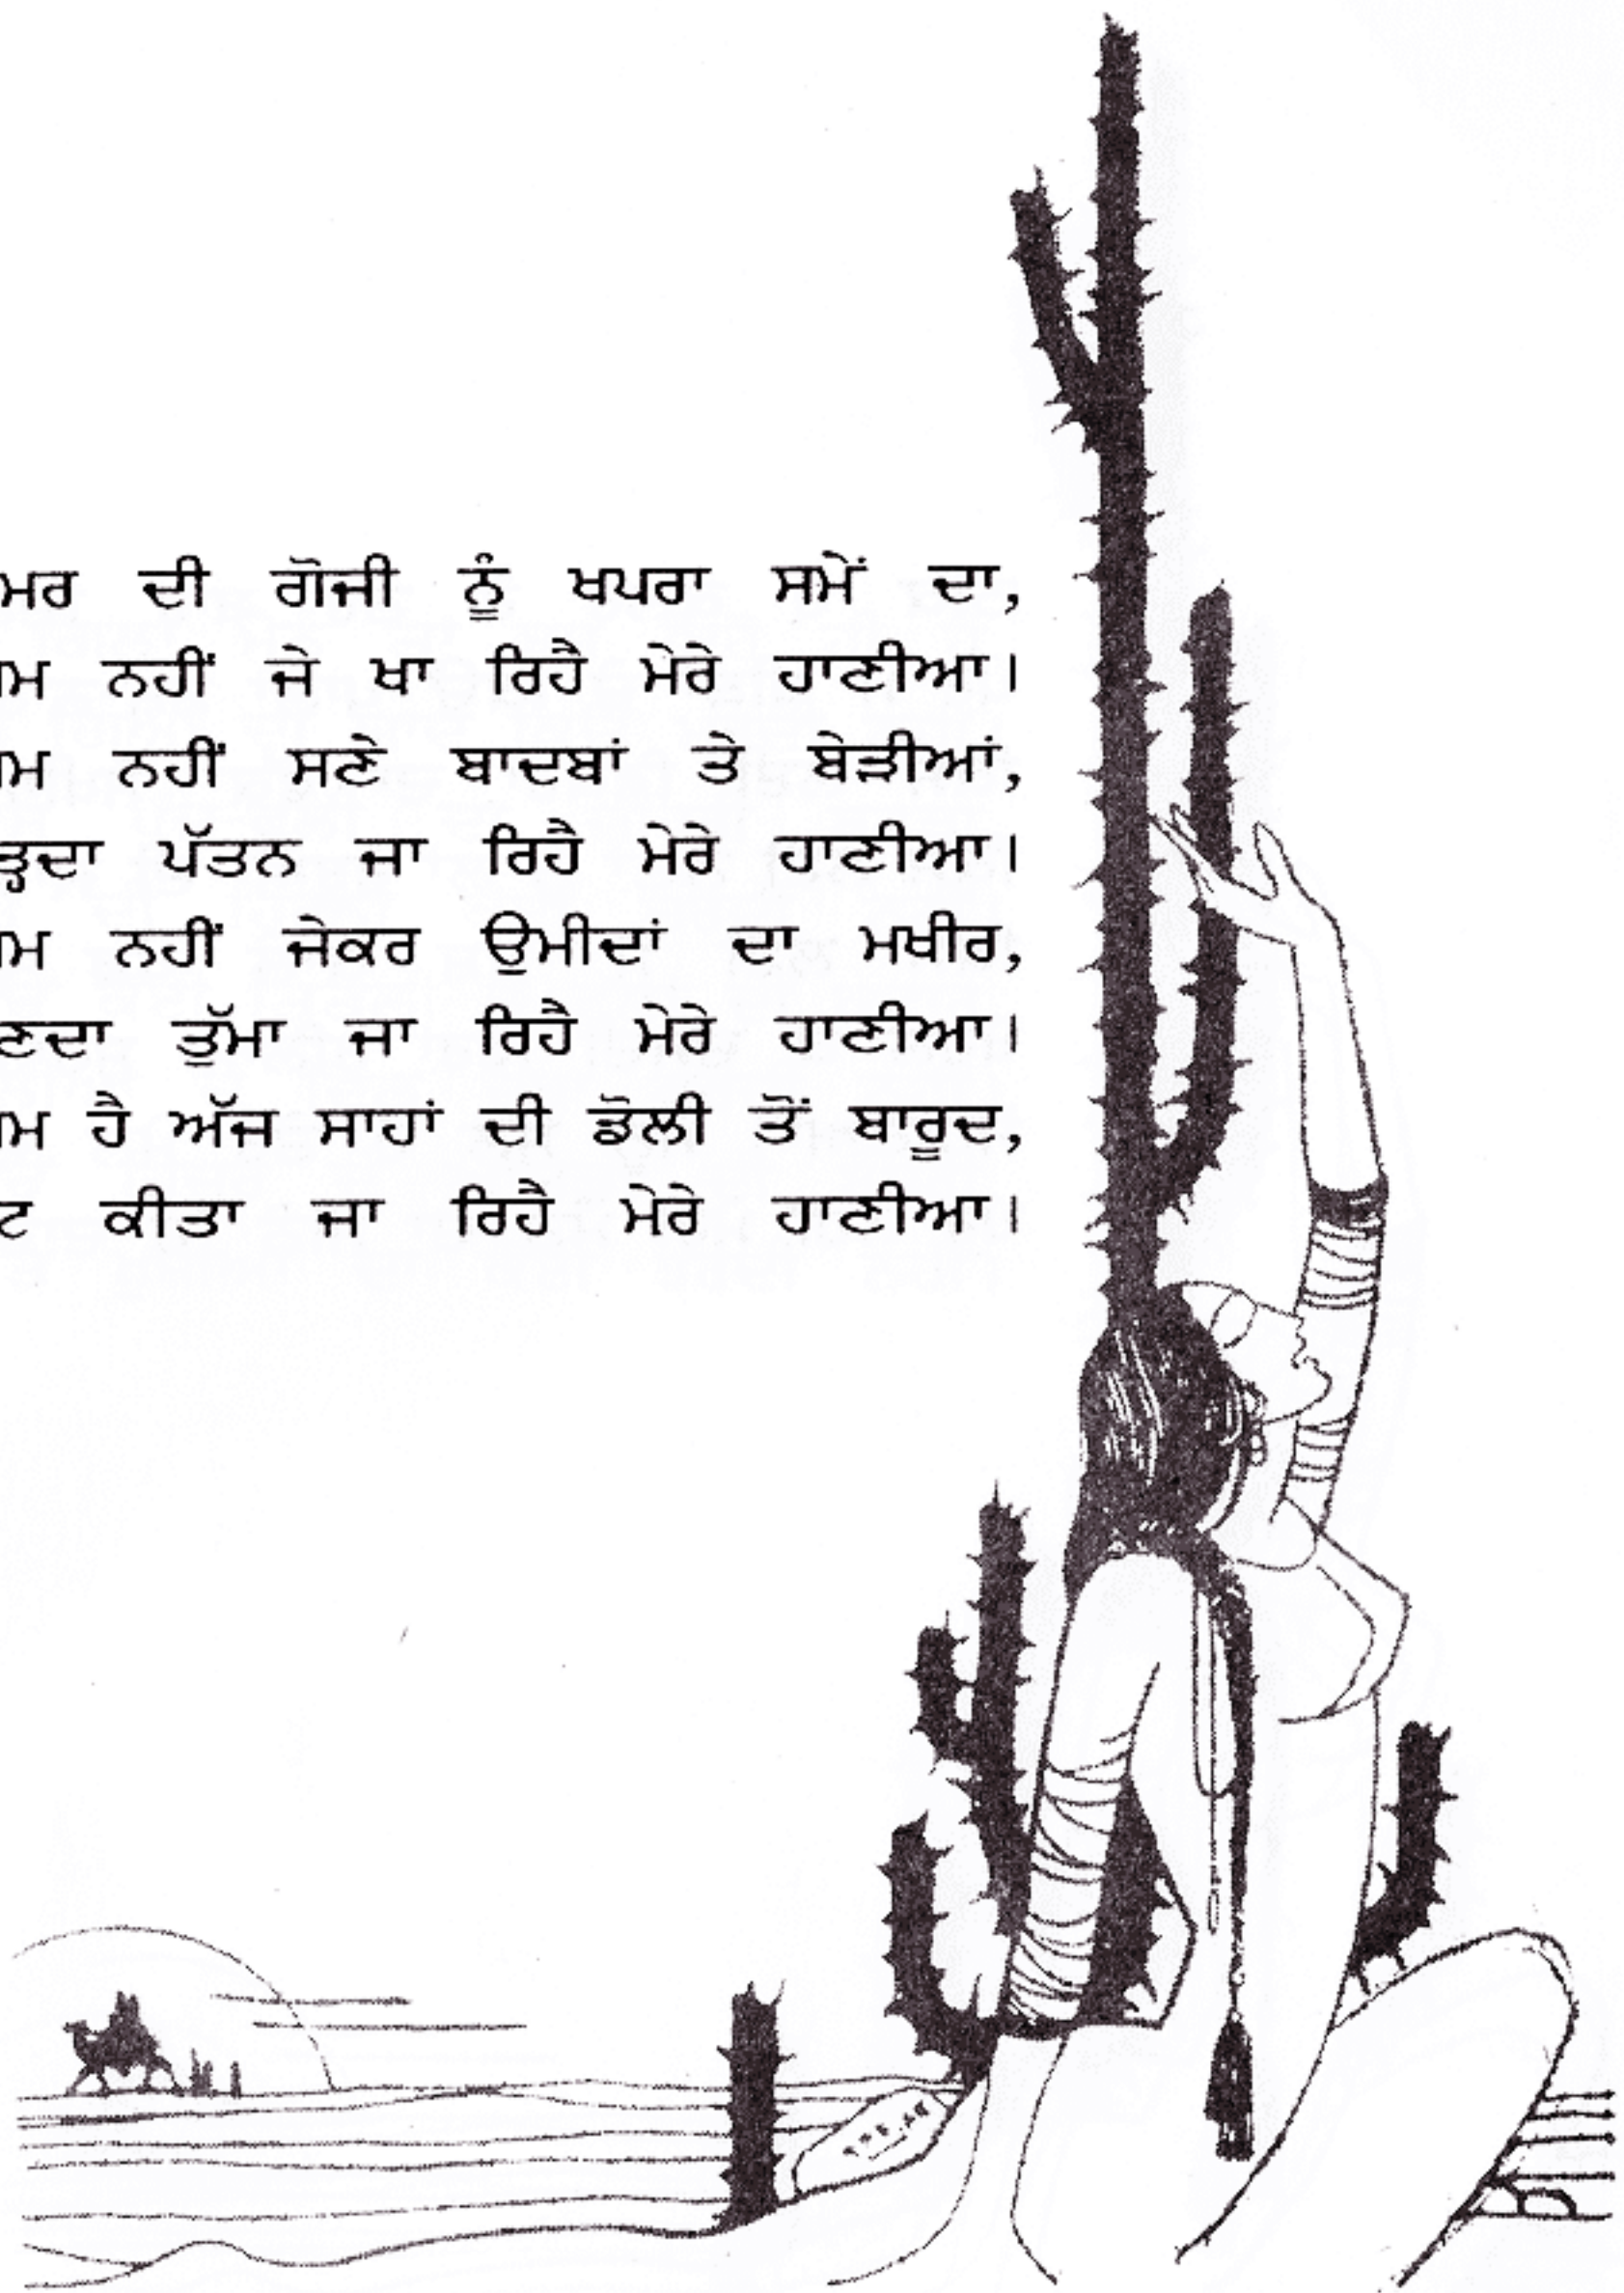 ਮਰ ਦੀ ਗੋਜੀ ਨੂੰ ਖਪਰਾ ਸਮੇਂ ਦਾ,
ਮ ਨਹੀਂ ਜੇ ਖਾ ਰਿਹੈ ਮੇਰੇ ਹਾਣੀਆ।
ਮ ਨਹੀਂ ਸਣੇ ਬਾਦਬਾਂ ਤੇ ਬੇੜੀਆਂ,
ੜ੍ਹਦਾ ਪੱਤਨ ਜਾ ਰਿਹੈ ਮੇਰੇ ਹਾਣੀਆ।
ਮ ਨਹੀਂ ਜੇਕਰ ਉਮੀਦਾਂ ਦਾ ਮਖੀਰ,
ਣਦਾ ਤੁੱਮਾ ਜਾ ਰਿਹੈ ਮੇਰੇ ਹਾਣੀਆ।
ਮ ਹੈ ਅੱਜ ਸਾਹਾਂ ਦੀ ਡੋਲੀ ਤੋਂ ਬਾਰੂਦ,
ਟ ਕੀਤਾ ਜਾ ਰਿਹੈ ਮੇਰੇ ਹਾਣੀਆ।